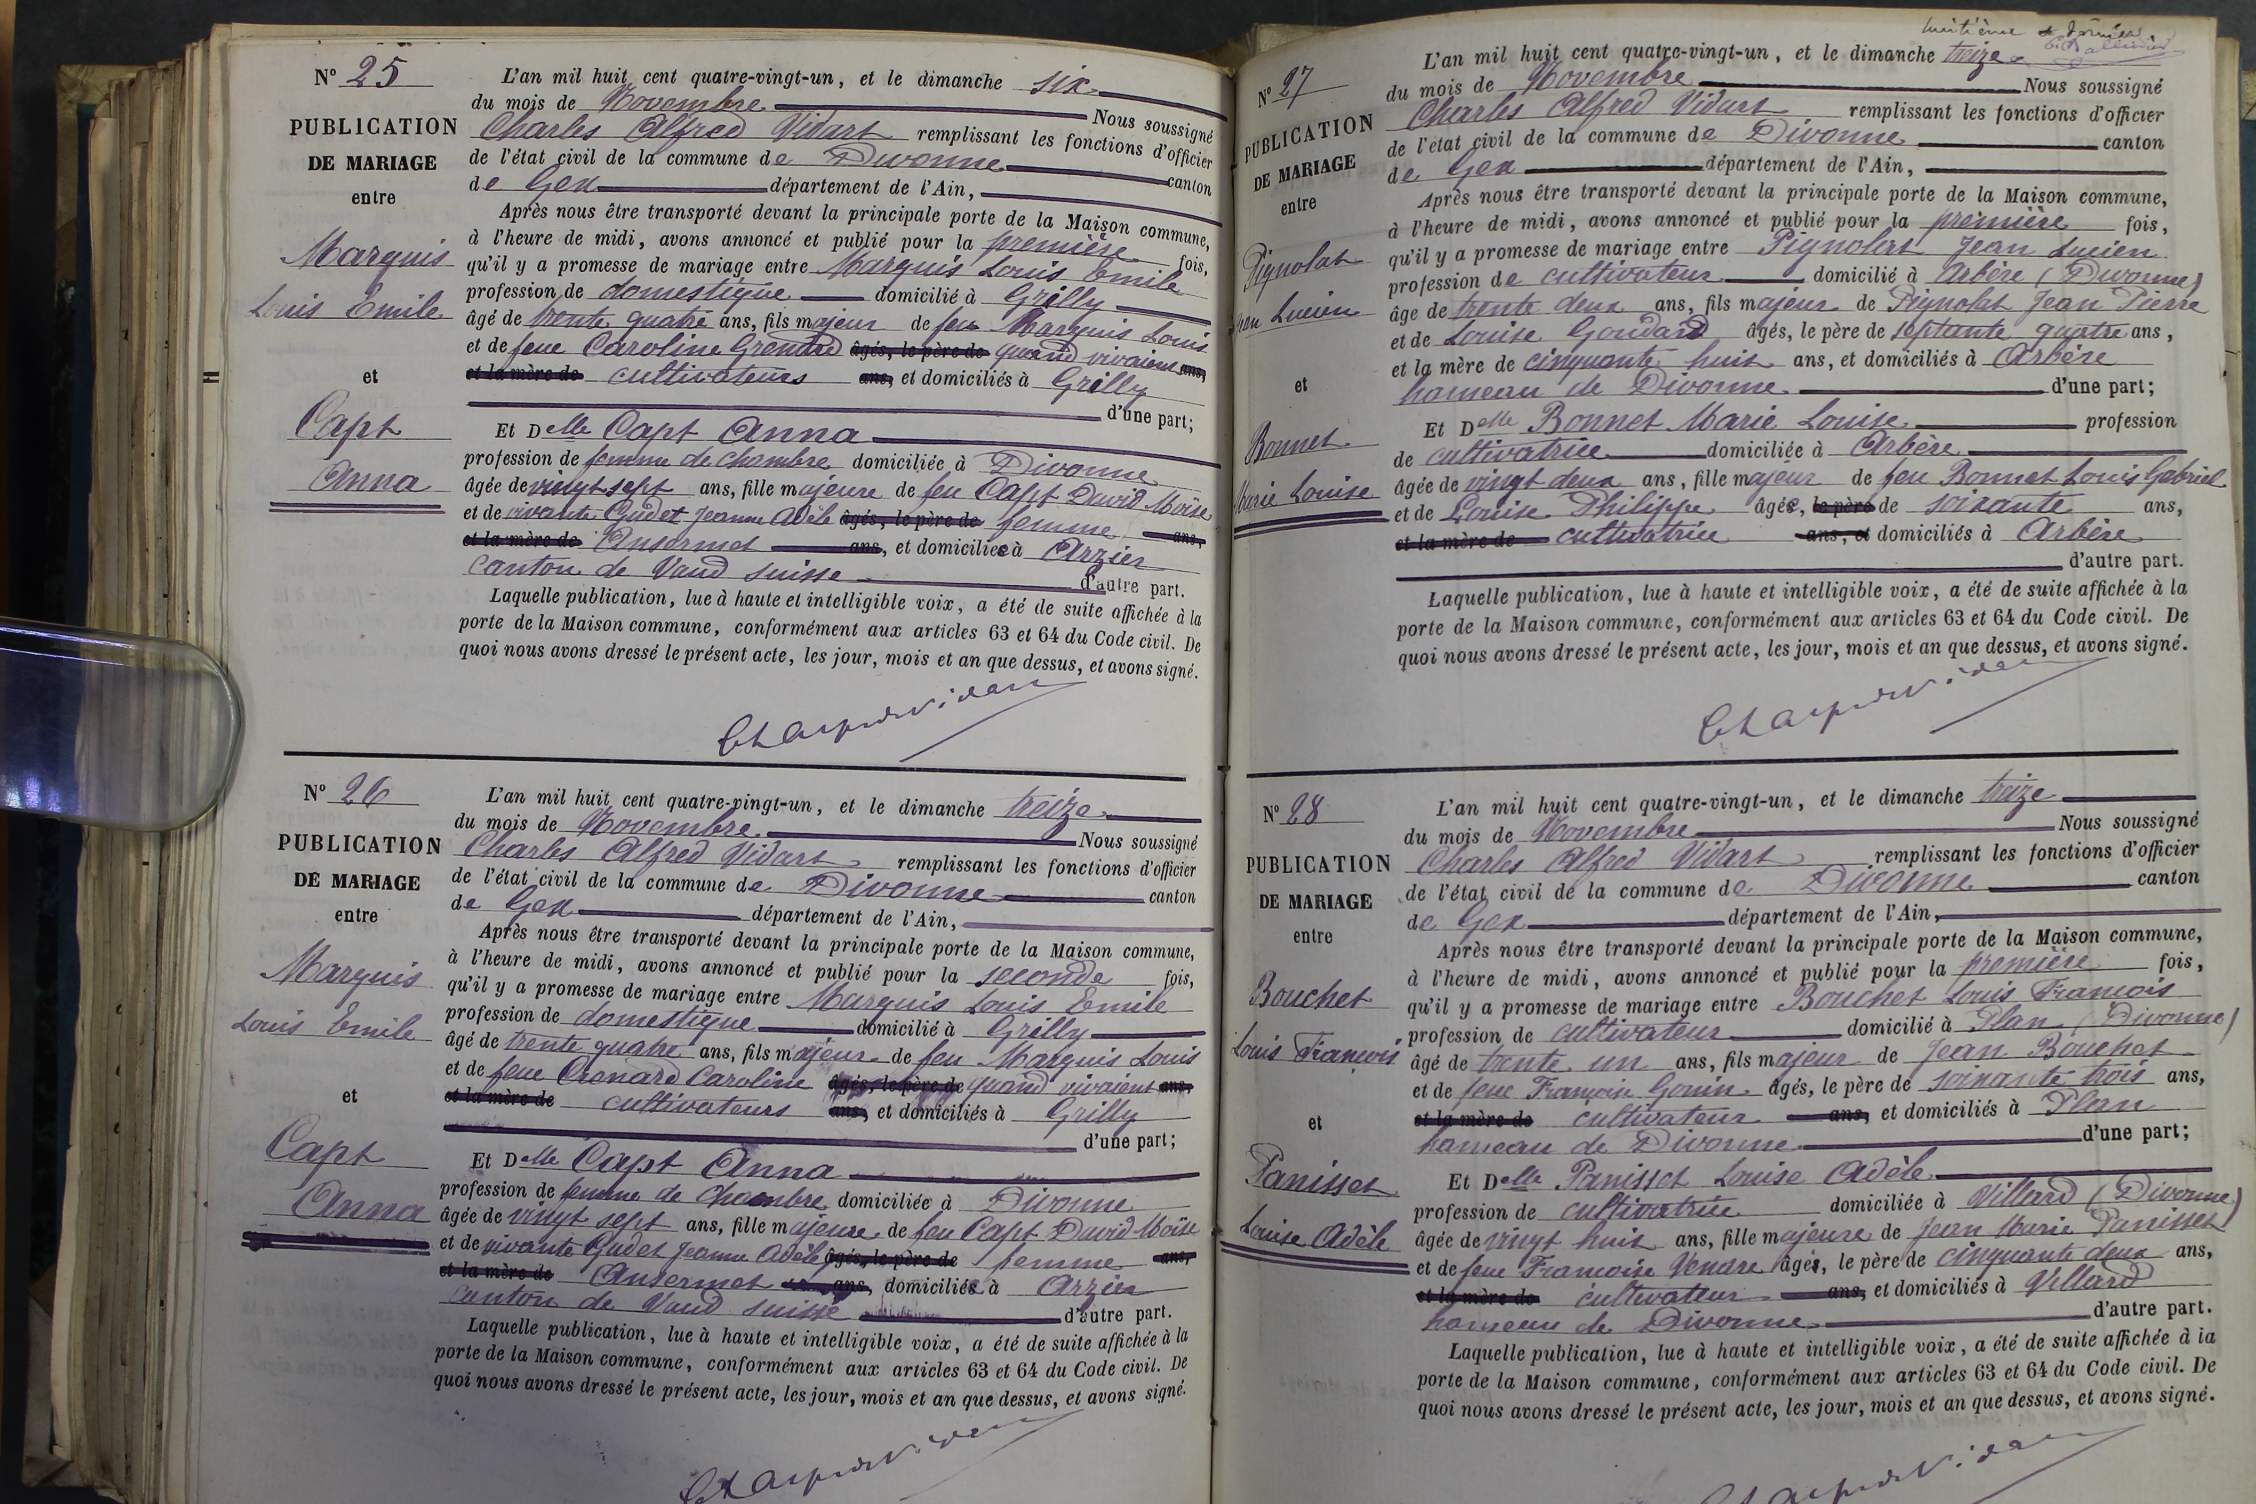 N° 25
PUBLICATION
DE MARIAGE
entre
Marquis
Louis Emile
et
Capt
Anna
L'an mil huit cent quatre-vingt-un, et le dimanche six
du mois de Novembre Nous soussigné
Charles Alfred Vidart remplissant les fonctions d'officier
de l'état civil de la commune de Divonne canton
de Gex département de l'Ain,
Après nous être transporté devant la principale porte de la Maison commune,
à l'heure de midi, avons annoncé et publié pour la première fois,
qu'il y a promesse de mariage entre Marquis Louis Emile
profession de domestique domicilié à Grilly
âgé de trente quatre ans, fils majeur de feu Marquis Louis
et de feue Caroline Grenard âgés, le père de quand vivaient ans,
et la mère de cultivateurs ans, et domiciliés à Grilly
d'une part;
Et Delle Capt Anna
profession de femme de chambre domiciliée à Divonne
âgée de vingt sept ans, fille majeure de feu Capt David Moïse
et de vivante Gudet Jeanne Adèle âgés, le père de femme ans,
et la mère de Ansermet ans, et domiciliée à Arzier
canton de Vaud suisse d'autre part.
Laquelle publication, lue à haute et intelligible voix, a été de suite affichée à la
porte de la Maison commune, conformément aux articles 63 et 64 du Code civil. De
quoi nous avons dressé le présent acte, les jour, mois et an que dessus, et avons signé.
N° 26
PUBLICATION
DE MARIAGE
entre
Marquis
Louis Emile
et
Capt
Anna
L'an mil huit cent quatre-vingt-un, et le dimanche treize
du mois de Novembre Nous soussigné
Charles Alfred Vidart remplissant les fonctions d'officier
de l'état civil de la commune de Divonne canton
de Gex département de l'Ain,
Après nous être transporté devant la principale porte de la Maison commune,
à l'heure de midi, avons annoncé et publié pour la seconde fois,
qu'il y a promesse de mariage entre Marquis Louis Emile
profession de domestique domicilié à Grilly
âgé de trente quatre ans, fils majeur de feu Marquis Louis
et de feue Caroline âgés, le père de quand vivaient ans,
et la mère de cultivateurs ans, et domiciliés à Grilly
d'une part;
Et Delle Capt Anna
profession de femme de chambre domiciliée à Divonne
âgée de vingt sept ans, fille majeure de feu Capt David Moïse
et de vivante Gudet Jeanne Adèle âgés, le père de femme ans,
et la mère de Ansermet ans, domiciliés à Arzier
canton de Vaud suisse d'autre part.
Laquelle publication, lue à haute et intelligible voix, a été de suite affichée à la
porte de la Maison commune, conformément aux articles 63 et 64 du Code civil. De
quoi nous avons dressé le présent acte, les jour, mois et an que dessus, et avons signé.
huitième et dernier
N° 27
PUBLICATION
DE MARIAGE
entre
Pignolat
Jean Lucien
et
Bonnet
Marie Louise
L'an mil huit cent quatre-vingt-un, et le dimanche treize
du mois de Novembre Nous soussigné
Charles Alfred Vidart remplissant les fonctions d'officier
de l'état civil de la commune de Divonne canton
de Gex département de l'Ain,
Après nous être transporté devant la principale porte de la Maison commune,
à l'heure de midi, avons annoncé et publié pour la première fois,
qu'il y a promesse de mariage entre Pignolat Jean Lucien
profession de cultivateur domicilié à Arbère (Divonne)
âgé de trente deux ans, fils majeur de Pignolat Jean Pierre
et de Louise Goudard âgés, le père de septante quatre ans,
et la mère de cinquante huit ans, et domiciliés à Arbère
hameau de Divonne d'une part;
Et Delle Bonnet Marie Louise profession
de cultivatrice domiciliée à Arbère
âgée de vingt deux ans, fille majeur de feu Bonnet Louis Gabriel
et de Louise Philippe âgée, le père de soixante ans,
et la mère de cultivatrice ans, et domiciliés à Arbère
d'autre part.
Laquelle publication, lue à haute et intelligible voix, a été de suite affichée à la
porte de la Maison commune, conformément aux articles 63 et 64 du Code civil. De
quoi nous avons dressé le présent acte, les jour, mois et an que dessus, et avons signé.
N° 28
PUBLICATION
DE MARIAGE
entre
Bouchet
Louis François
et
Panisset
Louise Adèle
L'an mil huit cent quatre-vingt-un, et le dimanche treize
du mois de Novembre Nous soussigné
Charles Alfred Vidart remplissant les fonctions d'officier
de l'état civil de la commune de Divonne canton
de Gex département de l'Ain,
Après nous être transporté devant la principale porte de la Maison commune,
à l'heure de midi, avons annoncé et publié pour la première fois,
qu'il y a promesse de mariage entre Bouchet Louis François
profession de cultivateur domicilié à Plan (Divonne)
âgé de trente un ans, fils majeur de Jean Bouchet
et de feue Françoise Gonin âgés, le père de soixante trois ans,
et la mère de cultivateur ans, et domiciliés à Plan
hameau de Divonne d'une part;
Et Delle Panisset Louise Adèle
profession de cultivatrice domiciliée à Villard (Divonne)
âgée de vingt huit ans, fille majeure de Jean Marie Panisset
et de feue Françoise âgés, le père de cinquante deux ans,
et la mère de cultivateur ans, et domiciliés à Villard
hameau de Divonne d'autre part.
Laquelle publication, lue à haute et intelligible voix, a été de suite affichée à la
porte de la Maison commune, conformément aux articles 63 et 64 du Code civil. De
quoi nous avons dressé le présent acte, les jour, mois et an que dessus, et avons signé.